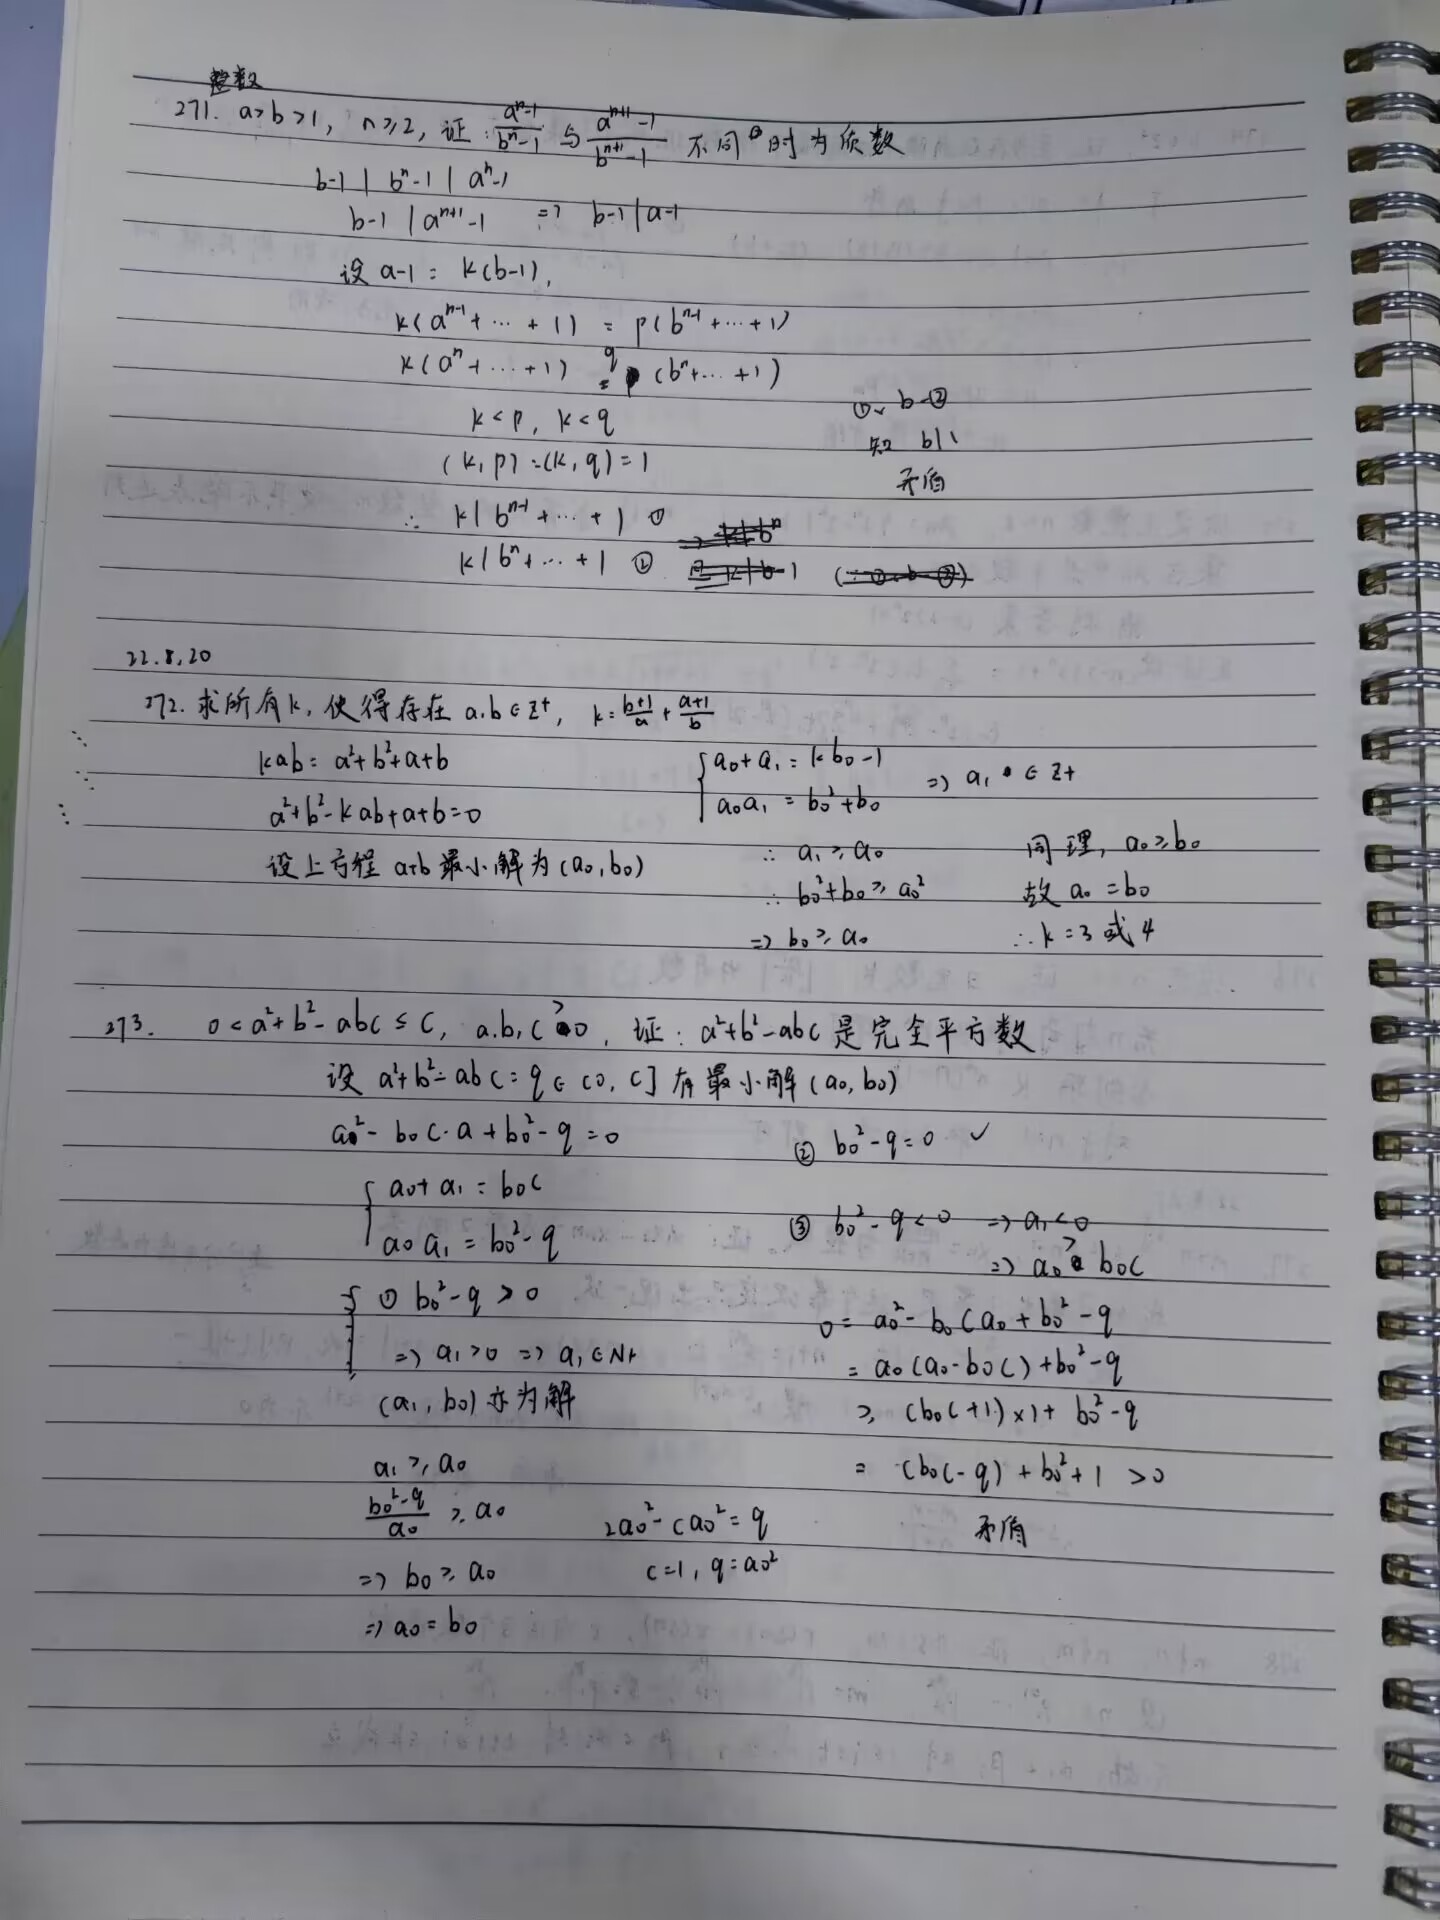 整数
271. a>b>1, n≥2, 证: (a^n-1)/(b^n-1) 与 (a^{n+1}-1)/(b^{n+1}-1) 不同时为质数
b-1 | b^n-1 | a^n-1
b-1 | a^{n+1}-1 => b-1 | a-1
设 a-1 = k(b-1),
k(a^{n-1}+⋯+1) = p(b^{n-1}+⋯+1)
k(a^n+⋯+1) = q(b^n+⋯+1)
k<p, k<q
(k,p)=(k,q)=1
∴ k | b^{n-1}+⋯+1 ①
k | b^n+⋯+1 ②
①×b-②
知 b|1
矛盾
22.8.20
272. 求所有k, 使得存在 a.b∈Z+, k=(b+1)/a+(a+1)/b
kab = a²+b²+a+b
a²+b²-kab+a+b=0
设上方程 a+b 最小解为(a₀,b₀)
{ a₀+a₁=kb₀-1
a₀a₁=b₀²+b₀ => a₁∈Z+
∴ a₁≥a₀
∴ b₀²+b₀≥a₀²
=> b₀≥a₀
同理, a₀≥b₀
故 a₀=b₀
∴ k=3或4
273. 0<a²+b²-abc≤c, a.b,c>0, 证: a²+b²-abc是完全平方数
设 a²+b²-abc=q∈(0,c]有最小解(a₀,b₀)
a₀²-b₀c·a+b₀²-q=0
{ a₀+a₁=b₀c
a₀a₁=b₀²-q
① b₀²-q>0
=> a₁>0 => a₁∈N+
(a₁,b₀)亦为解
a₁≥a₀
(b₀²-q)/a₀ ≥ a₀
=> b₀≥a₀
=> a₀=b₀
2a₀²-ca₀²=q
c=1, q=a₀²
② b₀²-q=0 ✓
③ b₀²-q<0 => a₁<0
=> a₀>b₀c
0=a₀²-b₀ca₀+b₀²-q
=a₀(a₀-b₀c)+b₀²-q
≥(b₀c+1)×1+b₀²-q
=(b₀c-q)+b₀²+1>0
矛盾